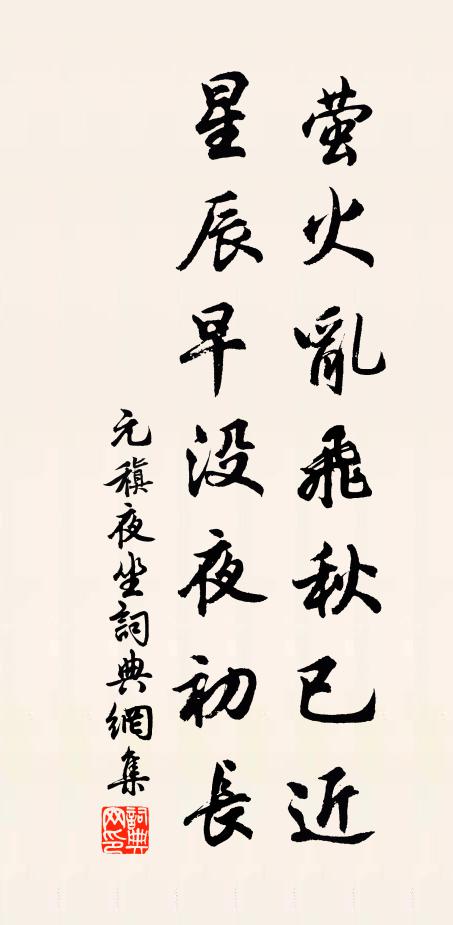 萤火亂飛秋已近
星辰早没夜初長
元稹夜坐詞典網集
詞典网印